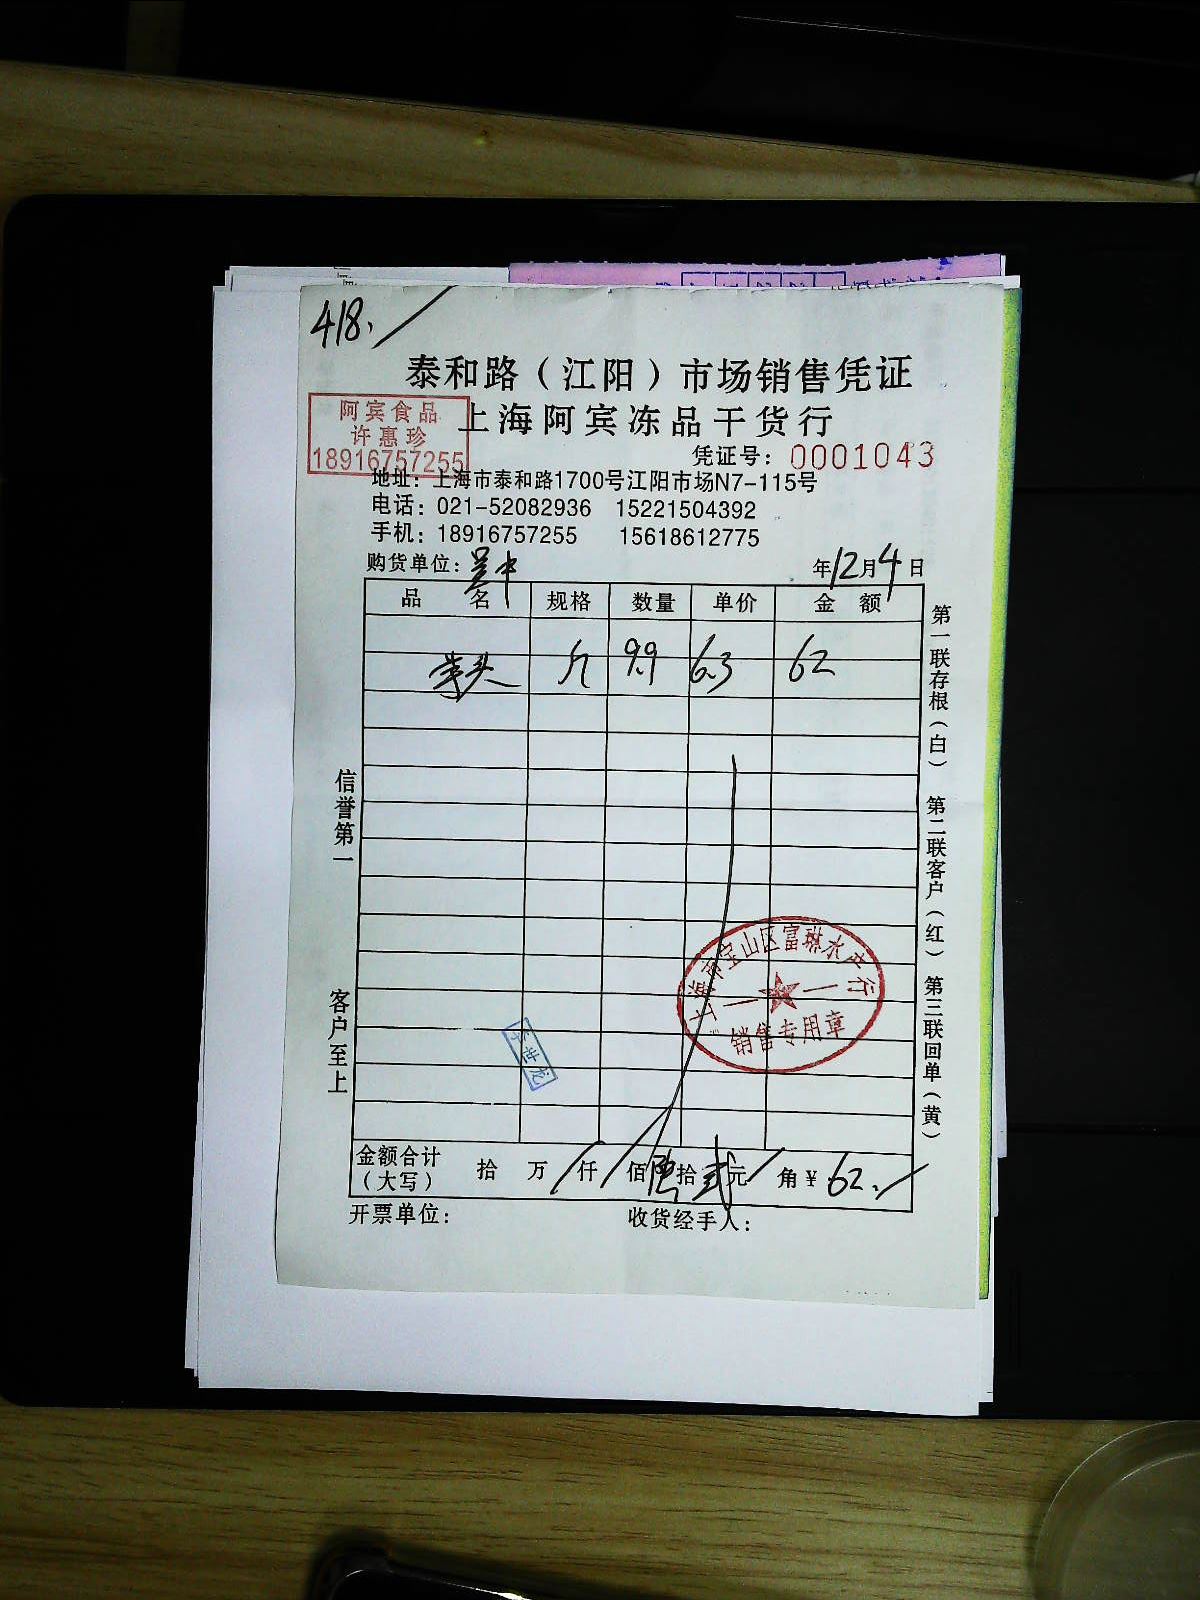 418.
泰和路（江阳）市场销售凭证
上海阿宾冻品干货行
阿宾食品
许惠珍
18916757255
凭证号：0001043
地址：上海市泰和路1700号江阳市场N7-115号
电话：021-52082936 15221504392
手机：18916757255 15618612775
购货单位：
年12月4日
品名 规格 数量 单价 金额
斤 9.9 6.3 62
信誉第一
客户至上
第一联存根（白） 第二联客户（红） 第三联回单（黄）
上海市宝山区富琳水产行
销售专用章
金额合计（大写） 拾 万 仟 佰 陆 拾 贰 元 角 ¥ 62.
开票单位： 收货经手人：